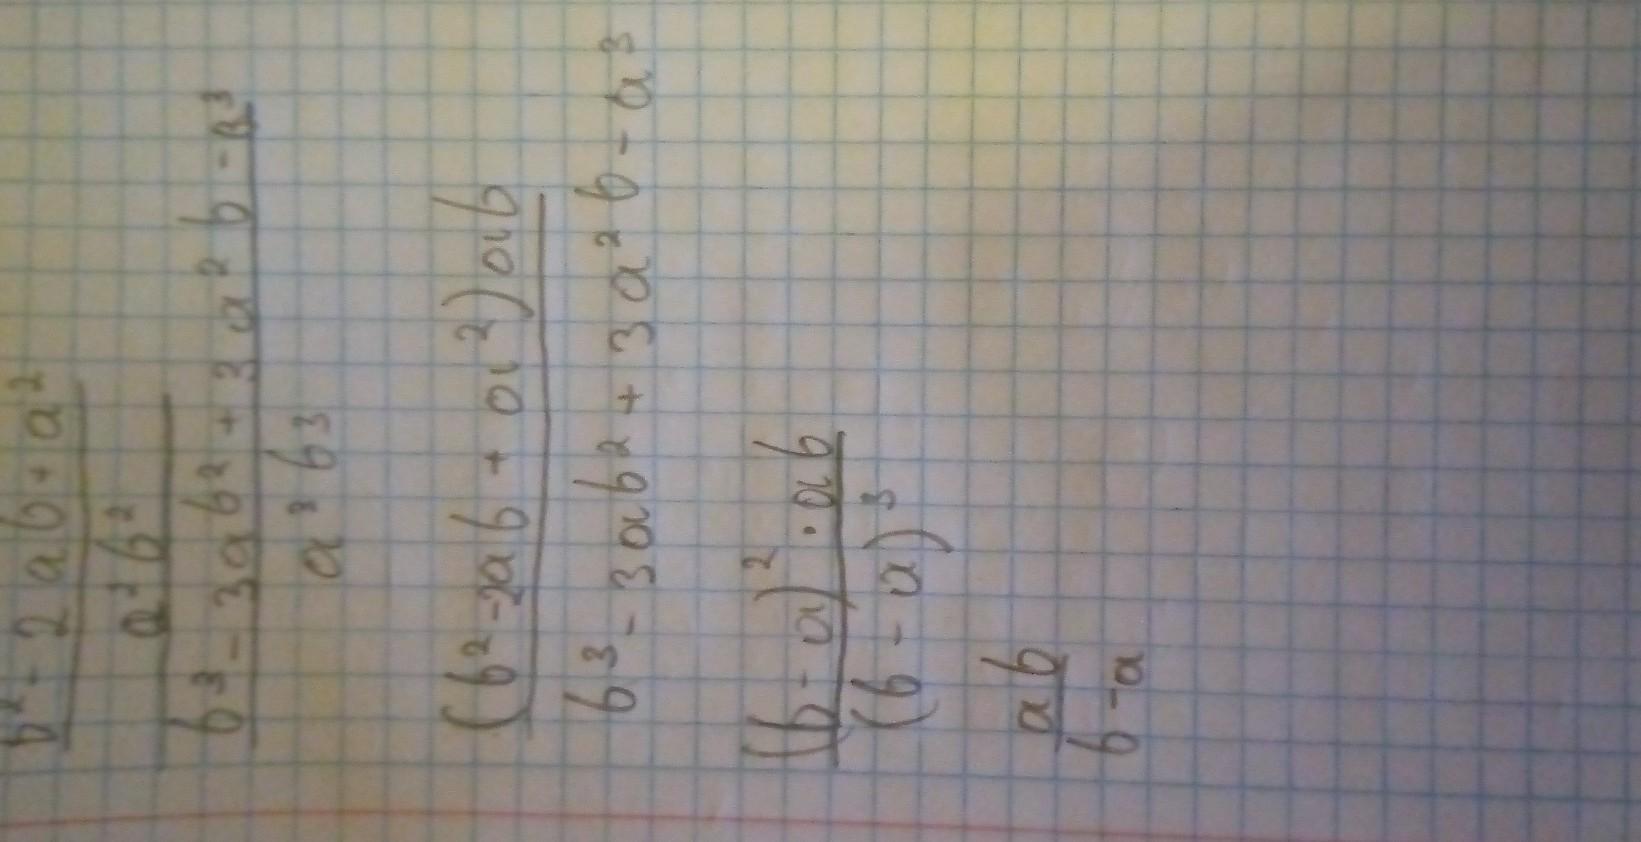 b² - 2ab + a²
a²b²
b³ - 3ab² + 3a²b - a³
a³b³
(b² - 2ab + a²)ab
b³ - 3ab² + 3a²b - a³
(b - a)² · ab
(b - a)³
ab
b - a